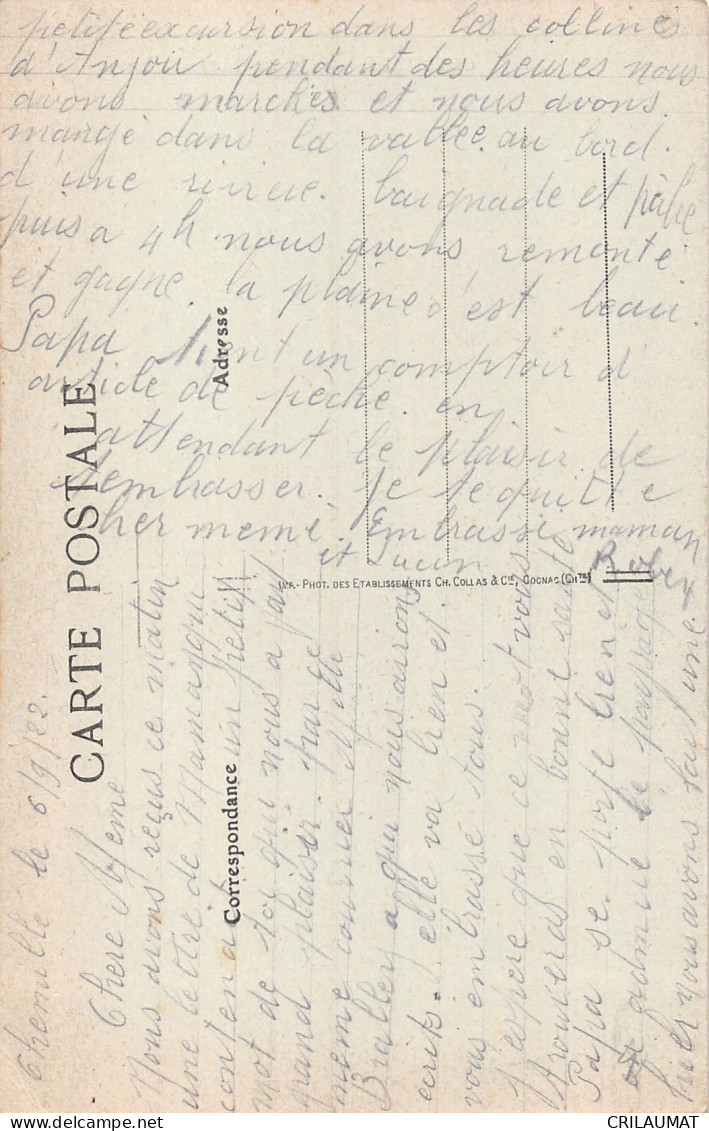 Chemillé le 6/9/22.
Chere Mémé
Nous avons reçus ce matin
une lettre de Mamangu
contenait un petit
mot de toi qui nous a fait
grand plaisir. par ce
même courrier Mlle
a qui nous avions
ecrits. elle va bien et
vous embrasse tous.
J'espere que ce mot vous
trouveras en bonne santé
Papa se porte bien et
admire le paysage
hier nous avons fait une
petite excursion dans les collines
d'Anjou pendant des heures nous
avons marchés et nous avons
mangé dans la vallée au bord.
d'une rivière. baignade et pêche
puis a 4h nous avons remonté
et gagné la plaine c'est beau.
Papa tient un comptoir d'
article de pêche. en
attendant le plaisir de
t'embrasser. je te quitte
cher memé. Embrasse maman
et Lucon
Rober
CARTE POSTALE
Correspondance
Adresse
IMP.- PHOT. DES ETABLISSEMENTS CH. COLLAS & Cie, COGNAC (Chte)
CRILAUMAT